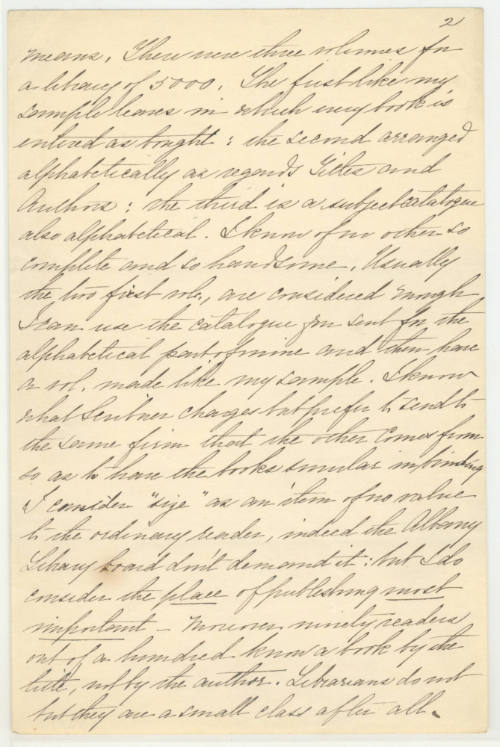 2
means. There were three volumes for
a library of 5000. The first like my
sample leaves in which every book is
entered as bought: the second arranged
alphabetically as regards Titles and
Authors: the third is a subject catalogue
also alphabetical. I know of no other so
complete and so handsome. Usually
the two first vols, are considered enough
I can use the catalogue you sent for the
alphabetical part of mine and then have
a vol. made like my sample. I know
what Scribner charges but prefer to send to
the same firm that the other comes from
so as to have the books similar in binding
I consider "size" as an item of no value
to the ordinary reader, indeed the Albany
Library board don't demand it: but I do
consider the place of publishing most
important - Moreover, ninety readers
out of a hundred know a book by the
title, not by the author. Librarians do not
but they are a small class after all.